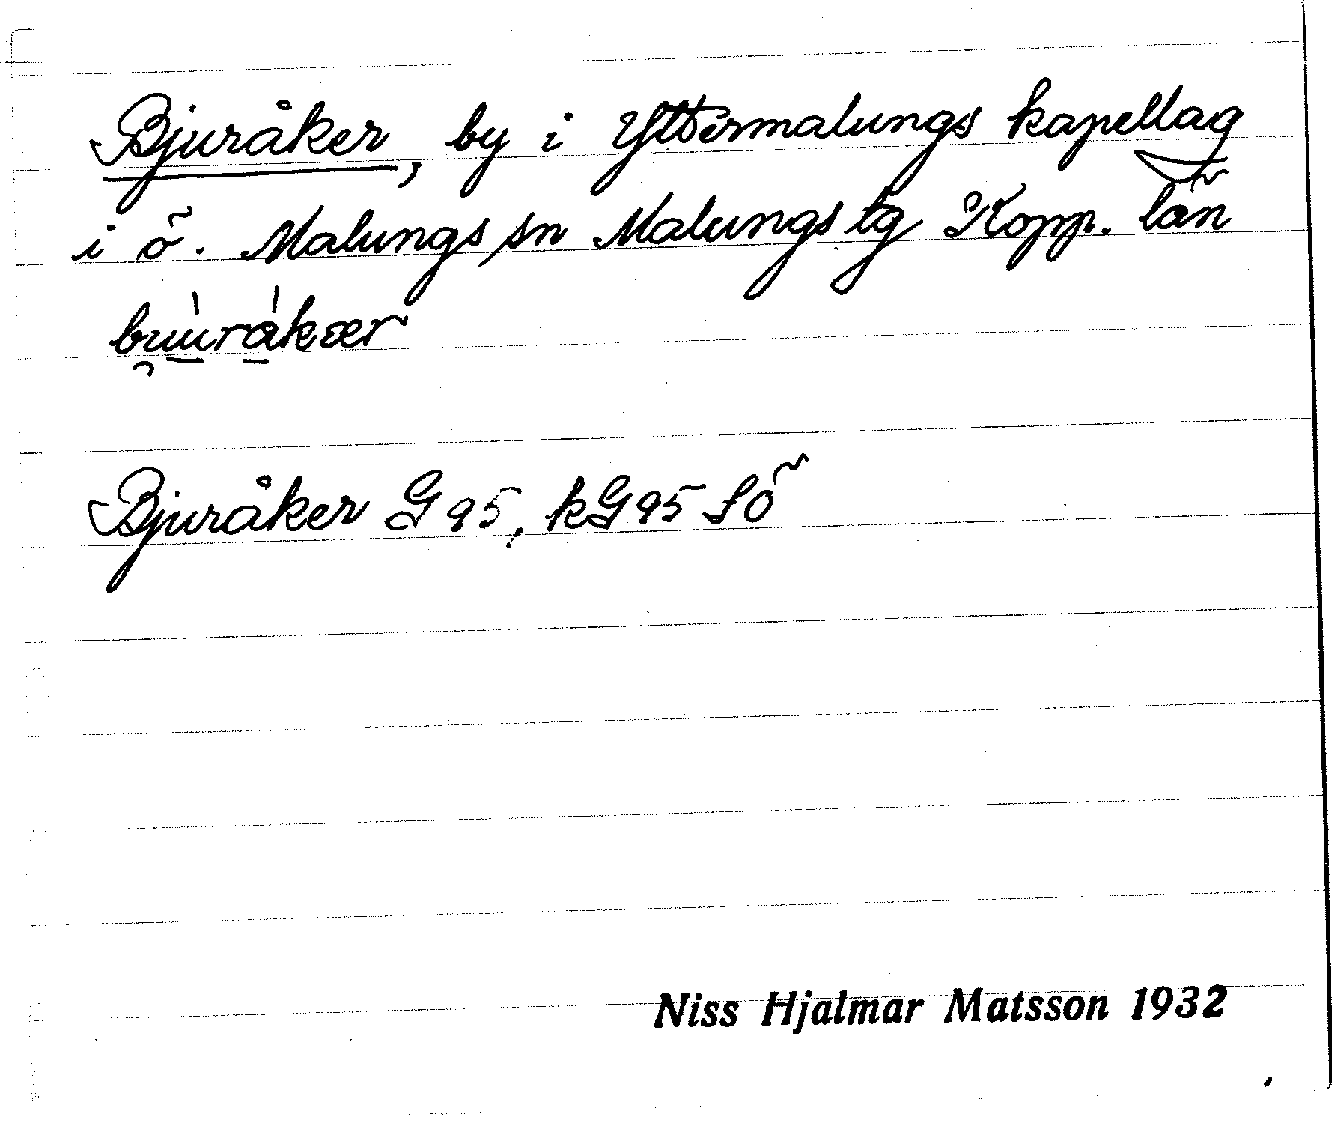 Bjuråker, by i Yttermalungs kapellag
i ö. Malungs sn Malungs tg Kopp. län
Bjuråker G 95, kG 95 Sö
Niss Hjalmar Matsson 1932